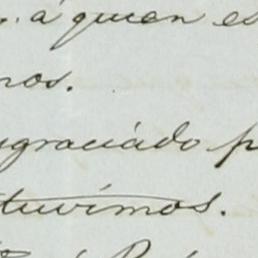 á quien es
nos.
graciado p
tuvimos.